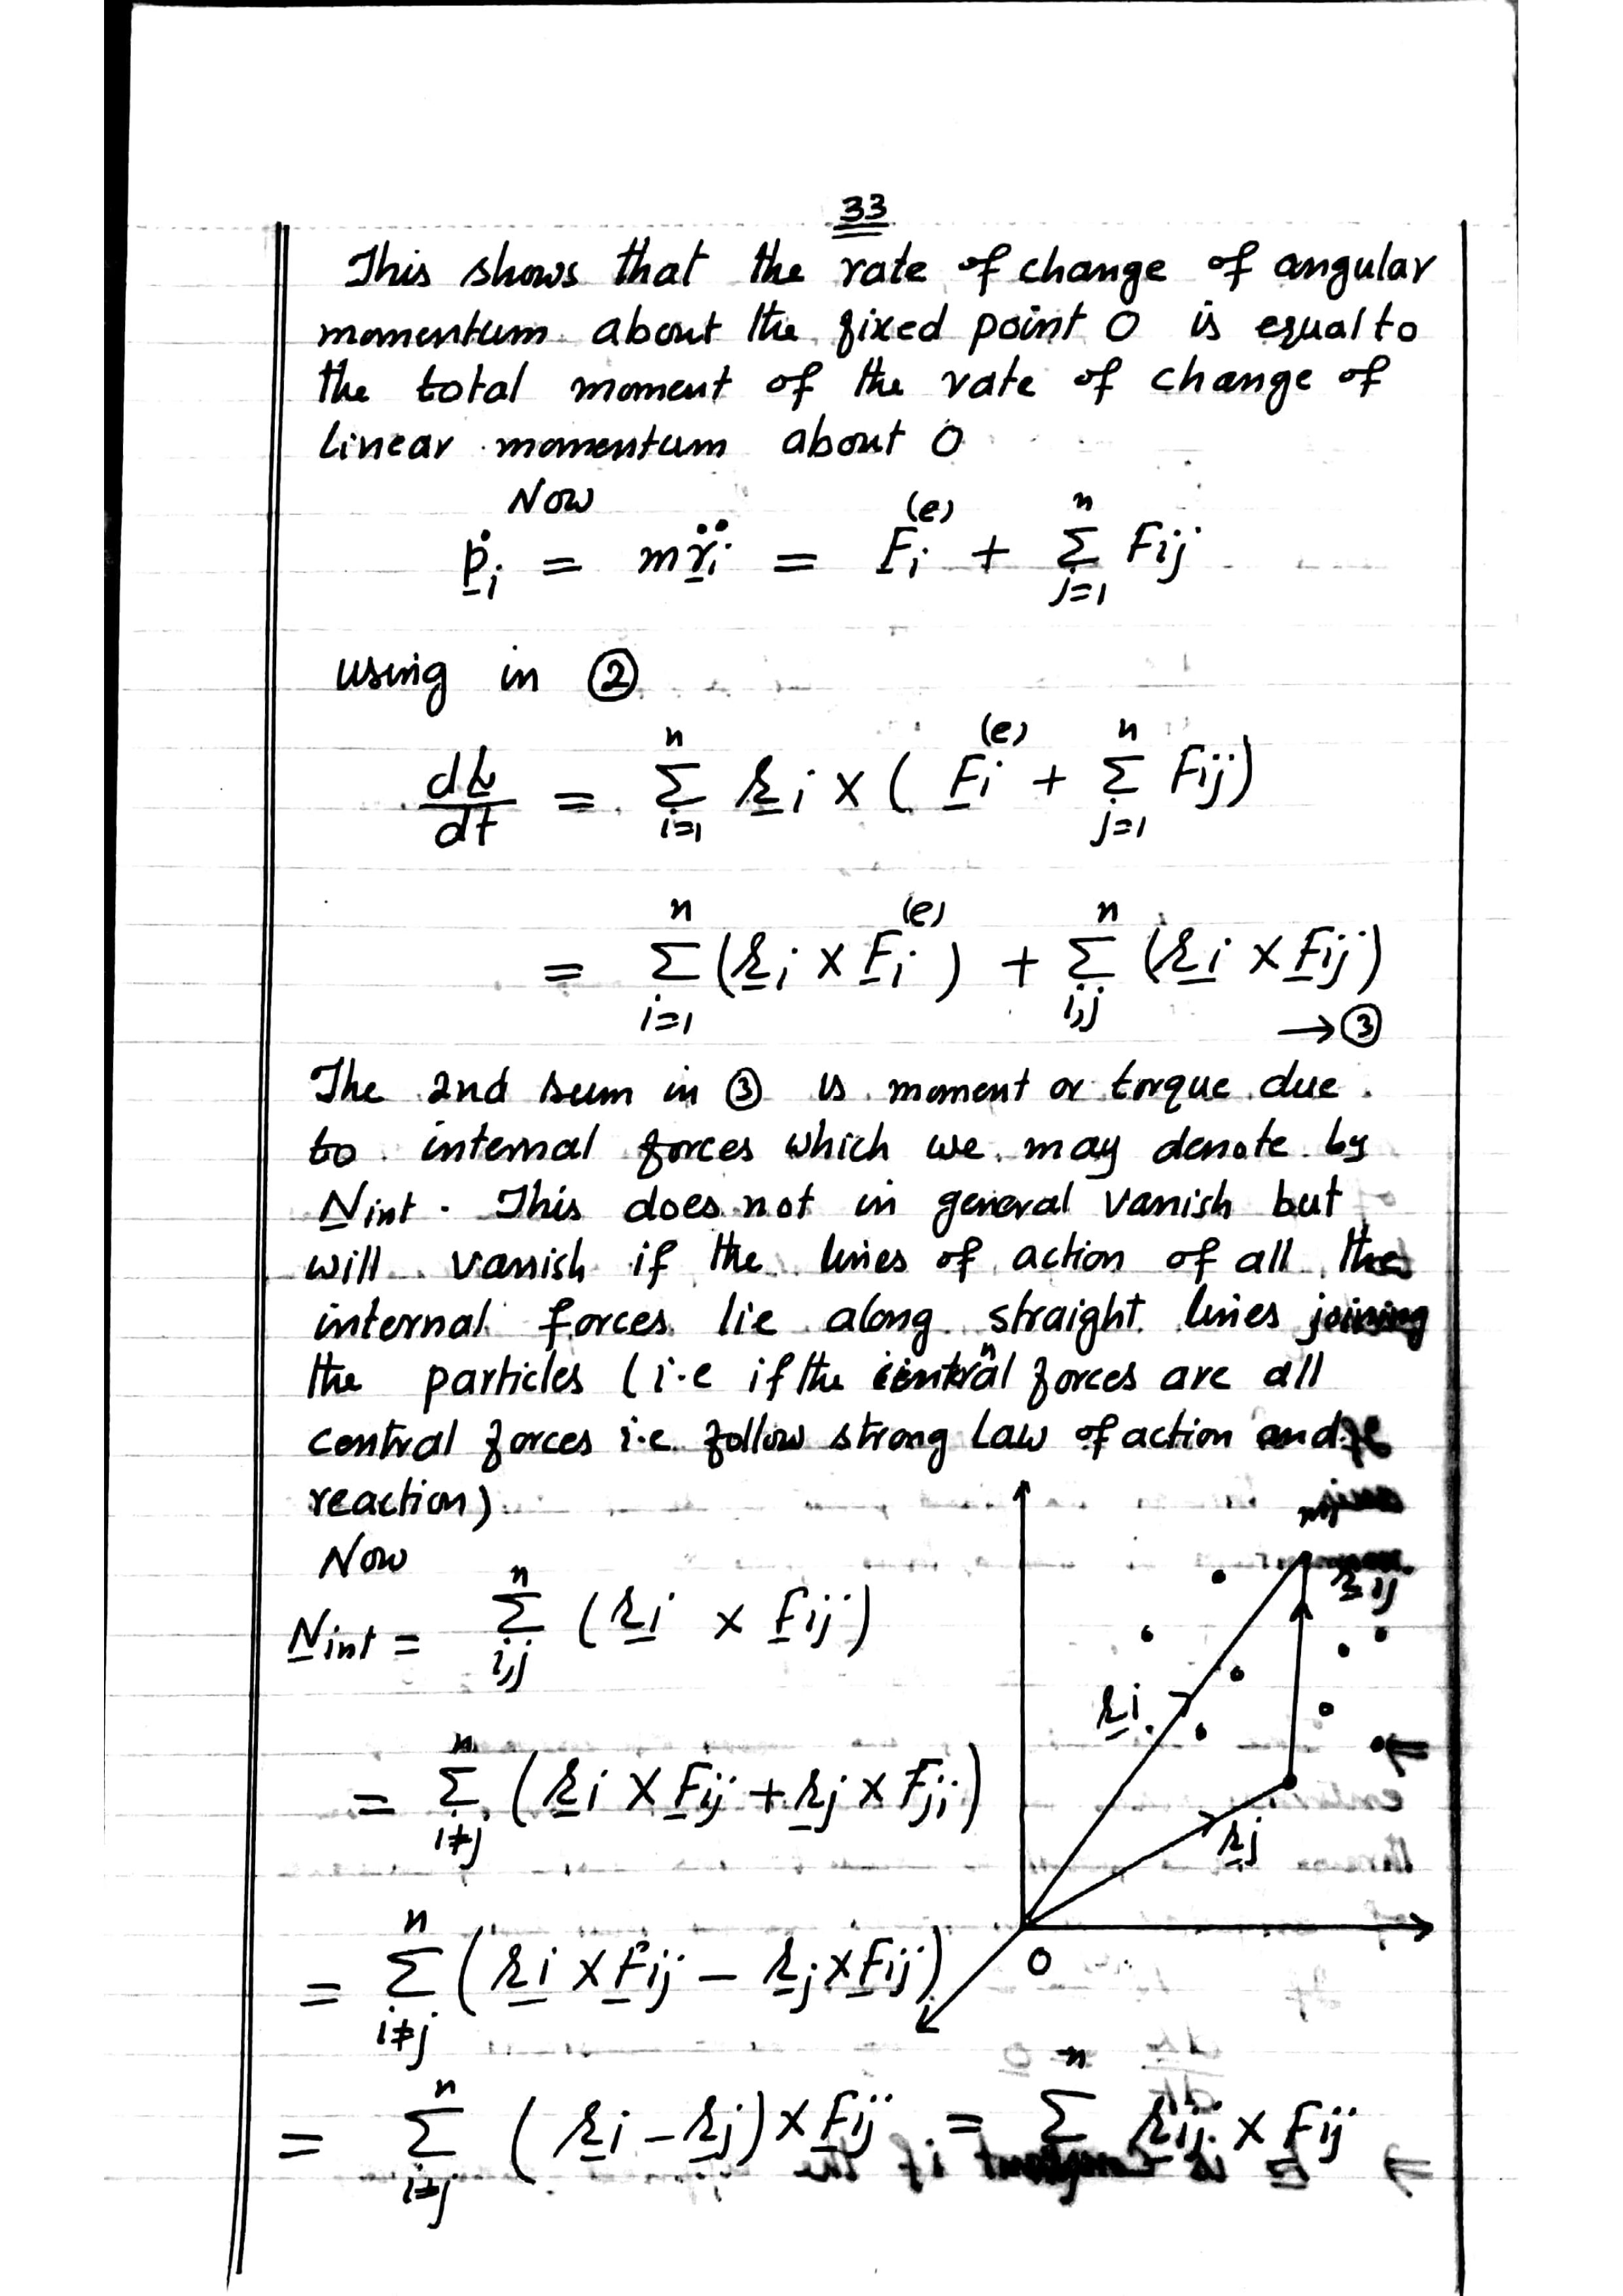 33
This shows that the rate of change of angular
momentum about the fixed point O is equal to
the total moment of the rate of change of
linear momentum about O
Now
ṗi = mr̈i = Fi^(e) + Σ_{j=1}^{n} Fij
using in ②
dL/dt = Σ_{i=1}^{n} ri × ( Fi^(e) + Σ_{j=1}^{n} Fij)
= Σ_{i=1}^{n} (ri × Fi^(e)) + Σ_{i,j}^{n} (ri × Fij)
→ ③
The 2nd sum in ③ is moment or torque due
to internal forces which we may denote by
Nint. This does not in general vanish but
will vanish if the lines of action of all the
internal forces lie along straight lines joining
the particles (i.e if the forces are all
central forces i.e. follow strong law of action and
reaction).
Now
Nint = Σ_{i,j}^{n} (ri × Fij)
= Σ_{i≠j}^{n} (ri × Fij + rj × Fji)
= Σ_{i≠j}^{n} (ri × Fij – rj × Fij)
= Σ_{i≠j}^{n} (ri – rj) × Fij = Σ^{n} rij × Fij
rij
ri
rj
O